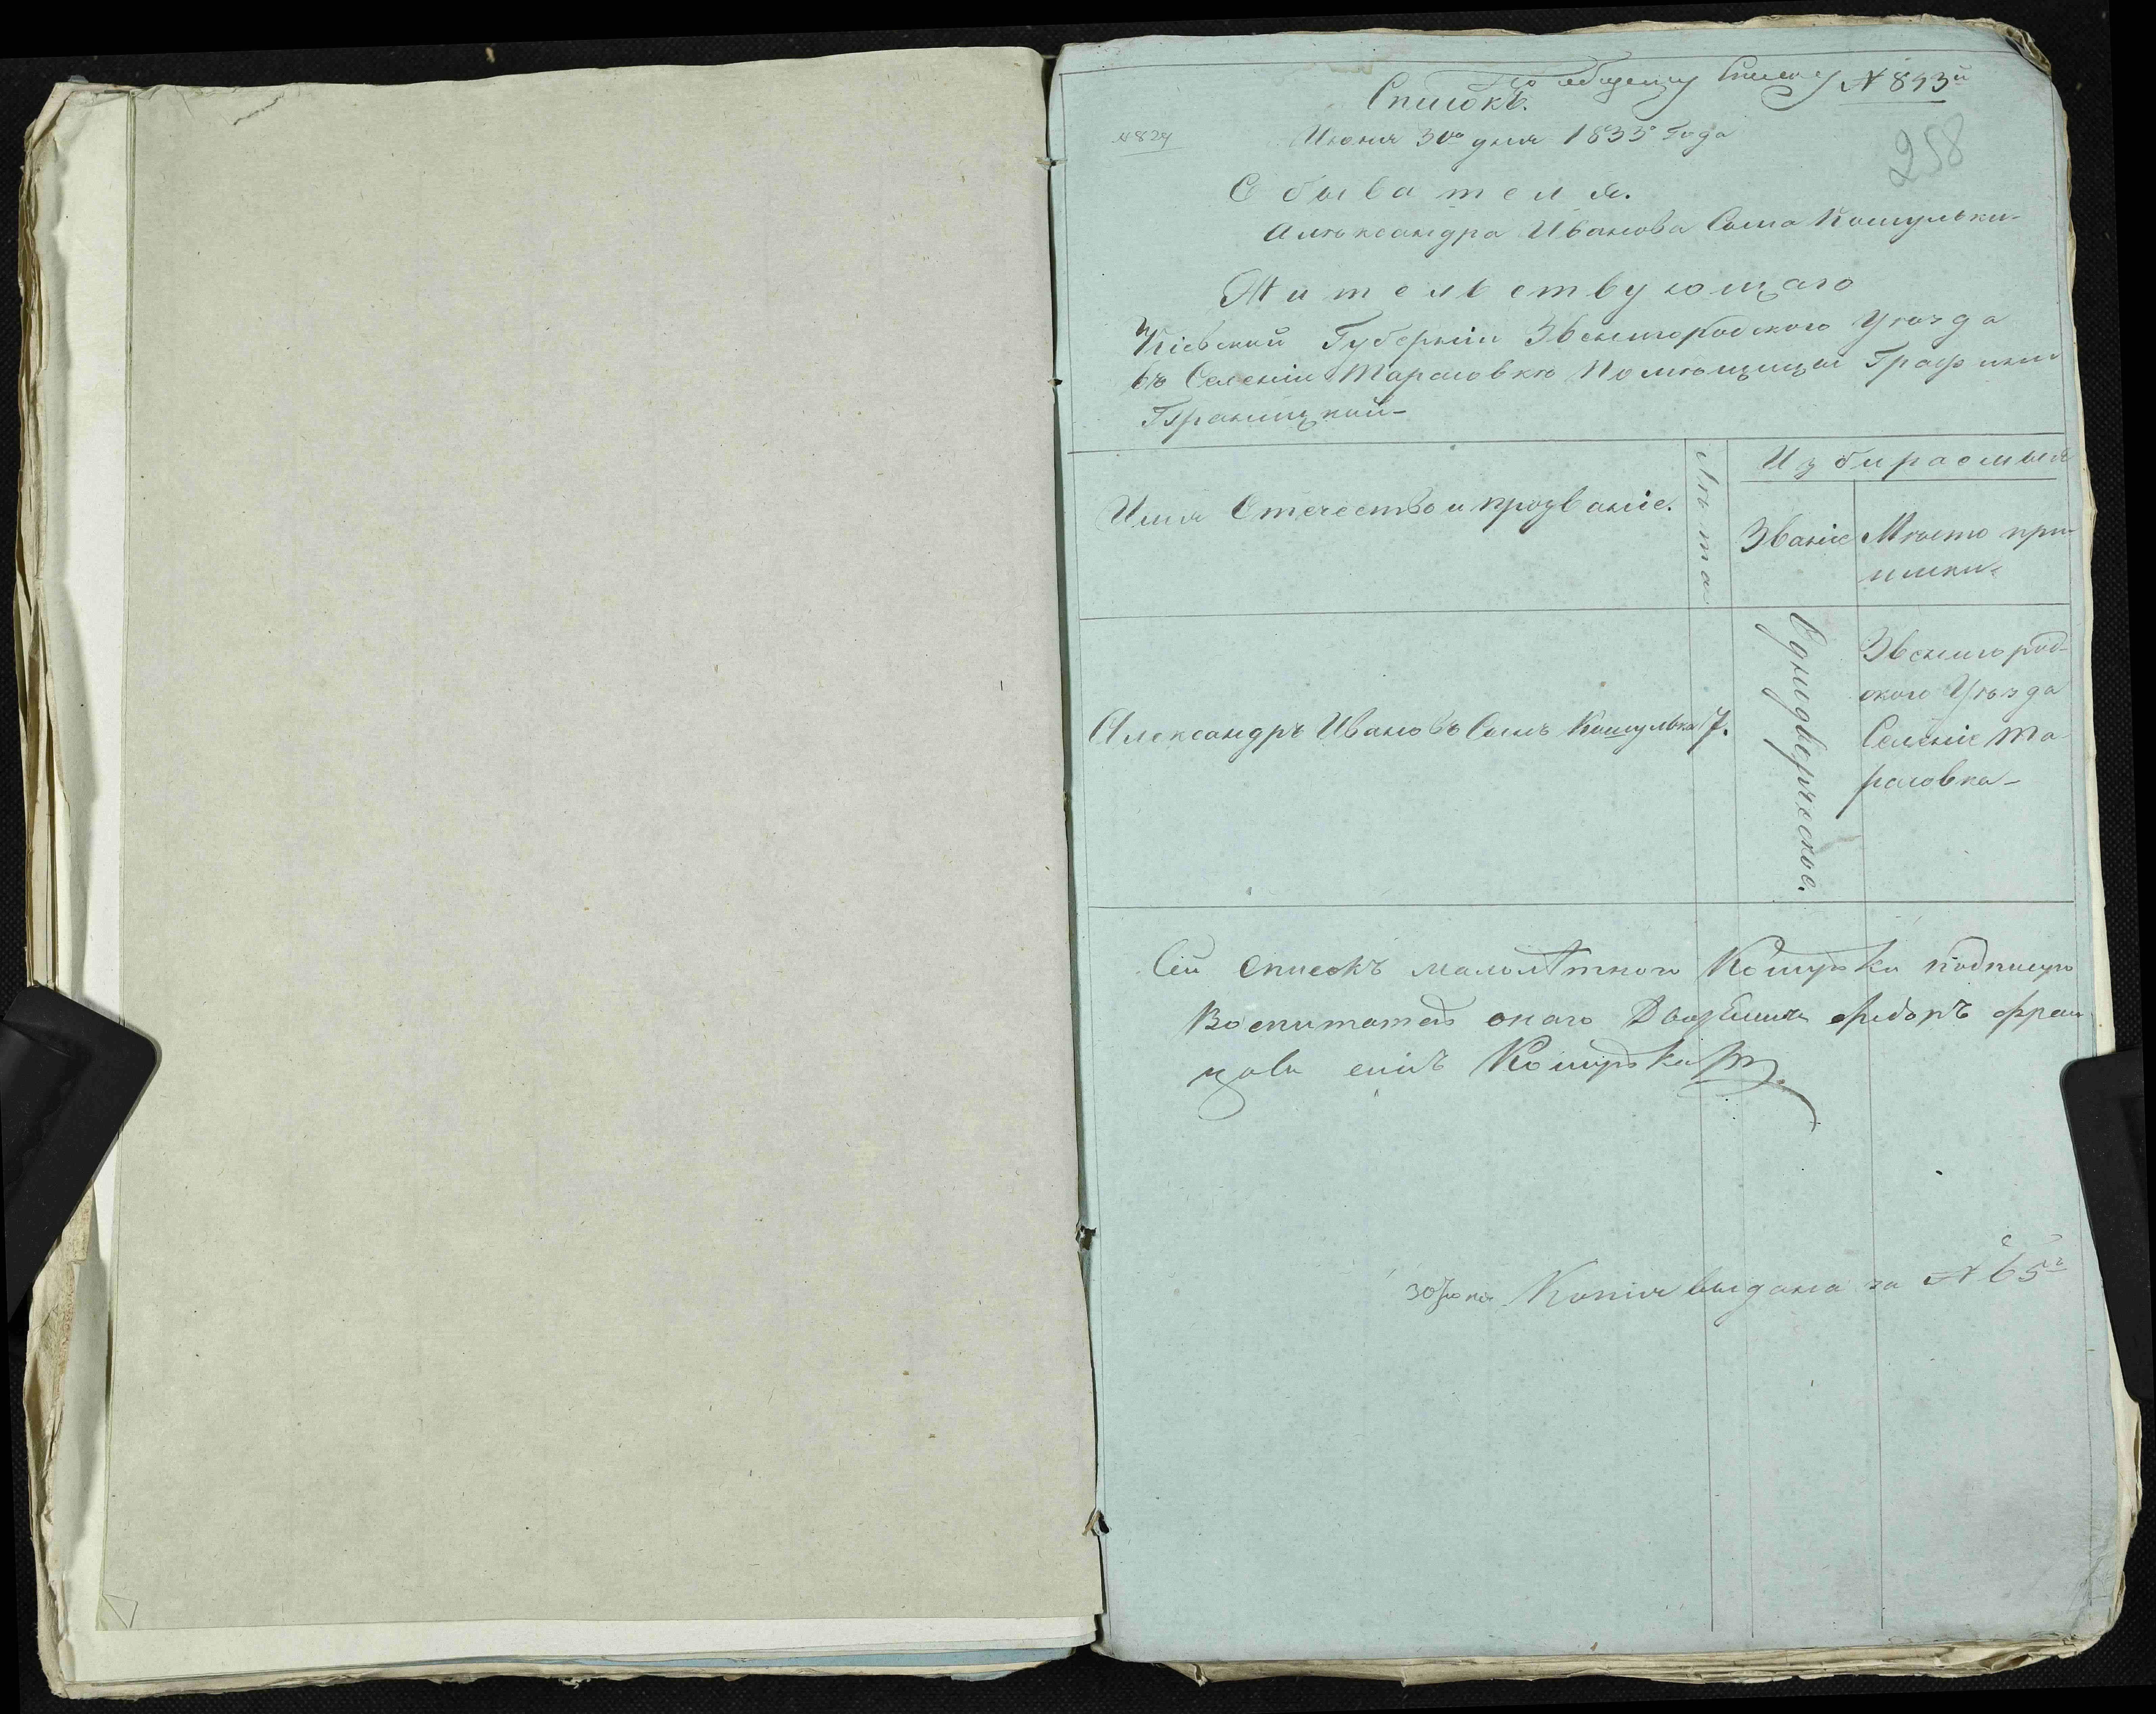 По общему Списку № 893й
Списокъ.
№ 829
Июня 30го дня 1833го Года
258
Обывателя.
Алѣксандра Иванова Сына Кошульки-
Жительствующаго
Кіевской Губерніи Звенигородского Уѣзда
въ Селеніи Тарасовкѣ Помѣщицы Графини
Браницкой-
Имя Отечество и прозваніе.
Лѣта
Избираемыя
Званіе
Мѣсто при-
писки.
Александръ Ивановъ Сынъ Кошулька
7.
Однодворческое.
Звенигород-
ского Уѣзда
Селеніе Та
расовка-
Сій Списокъ малолѣтного Кошульки подписую
Воспитатель оного Федоръ Фран
цовъ синъ Кошулька
30 Июня Копія выдана за № 65